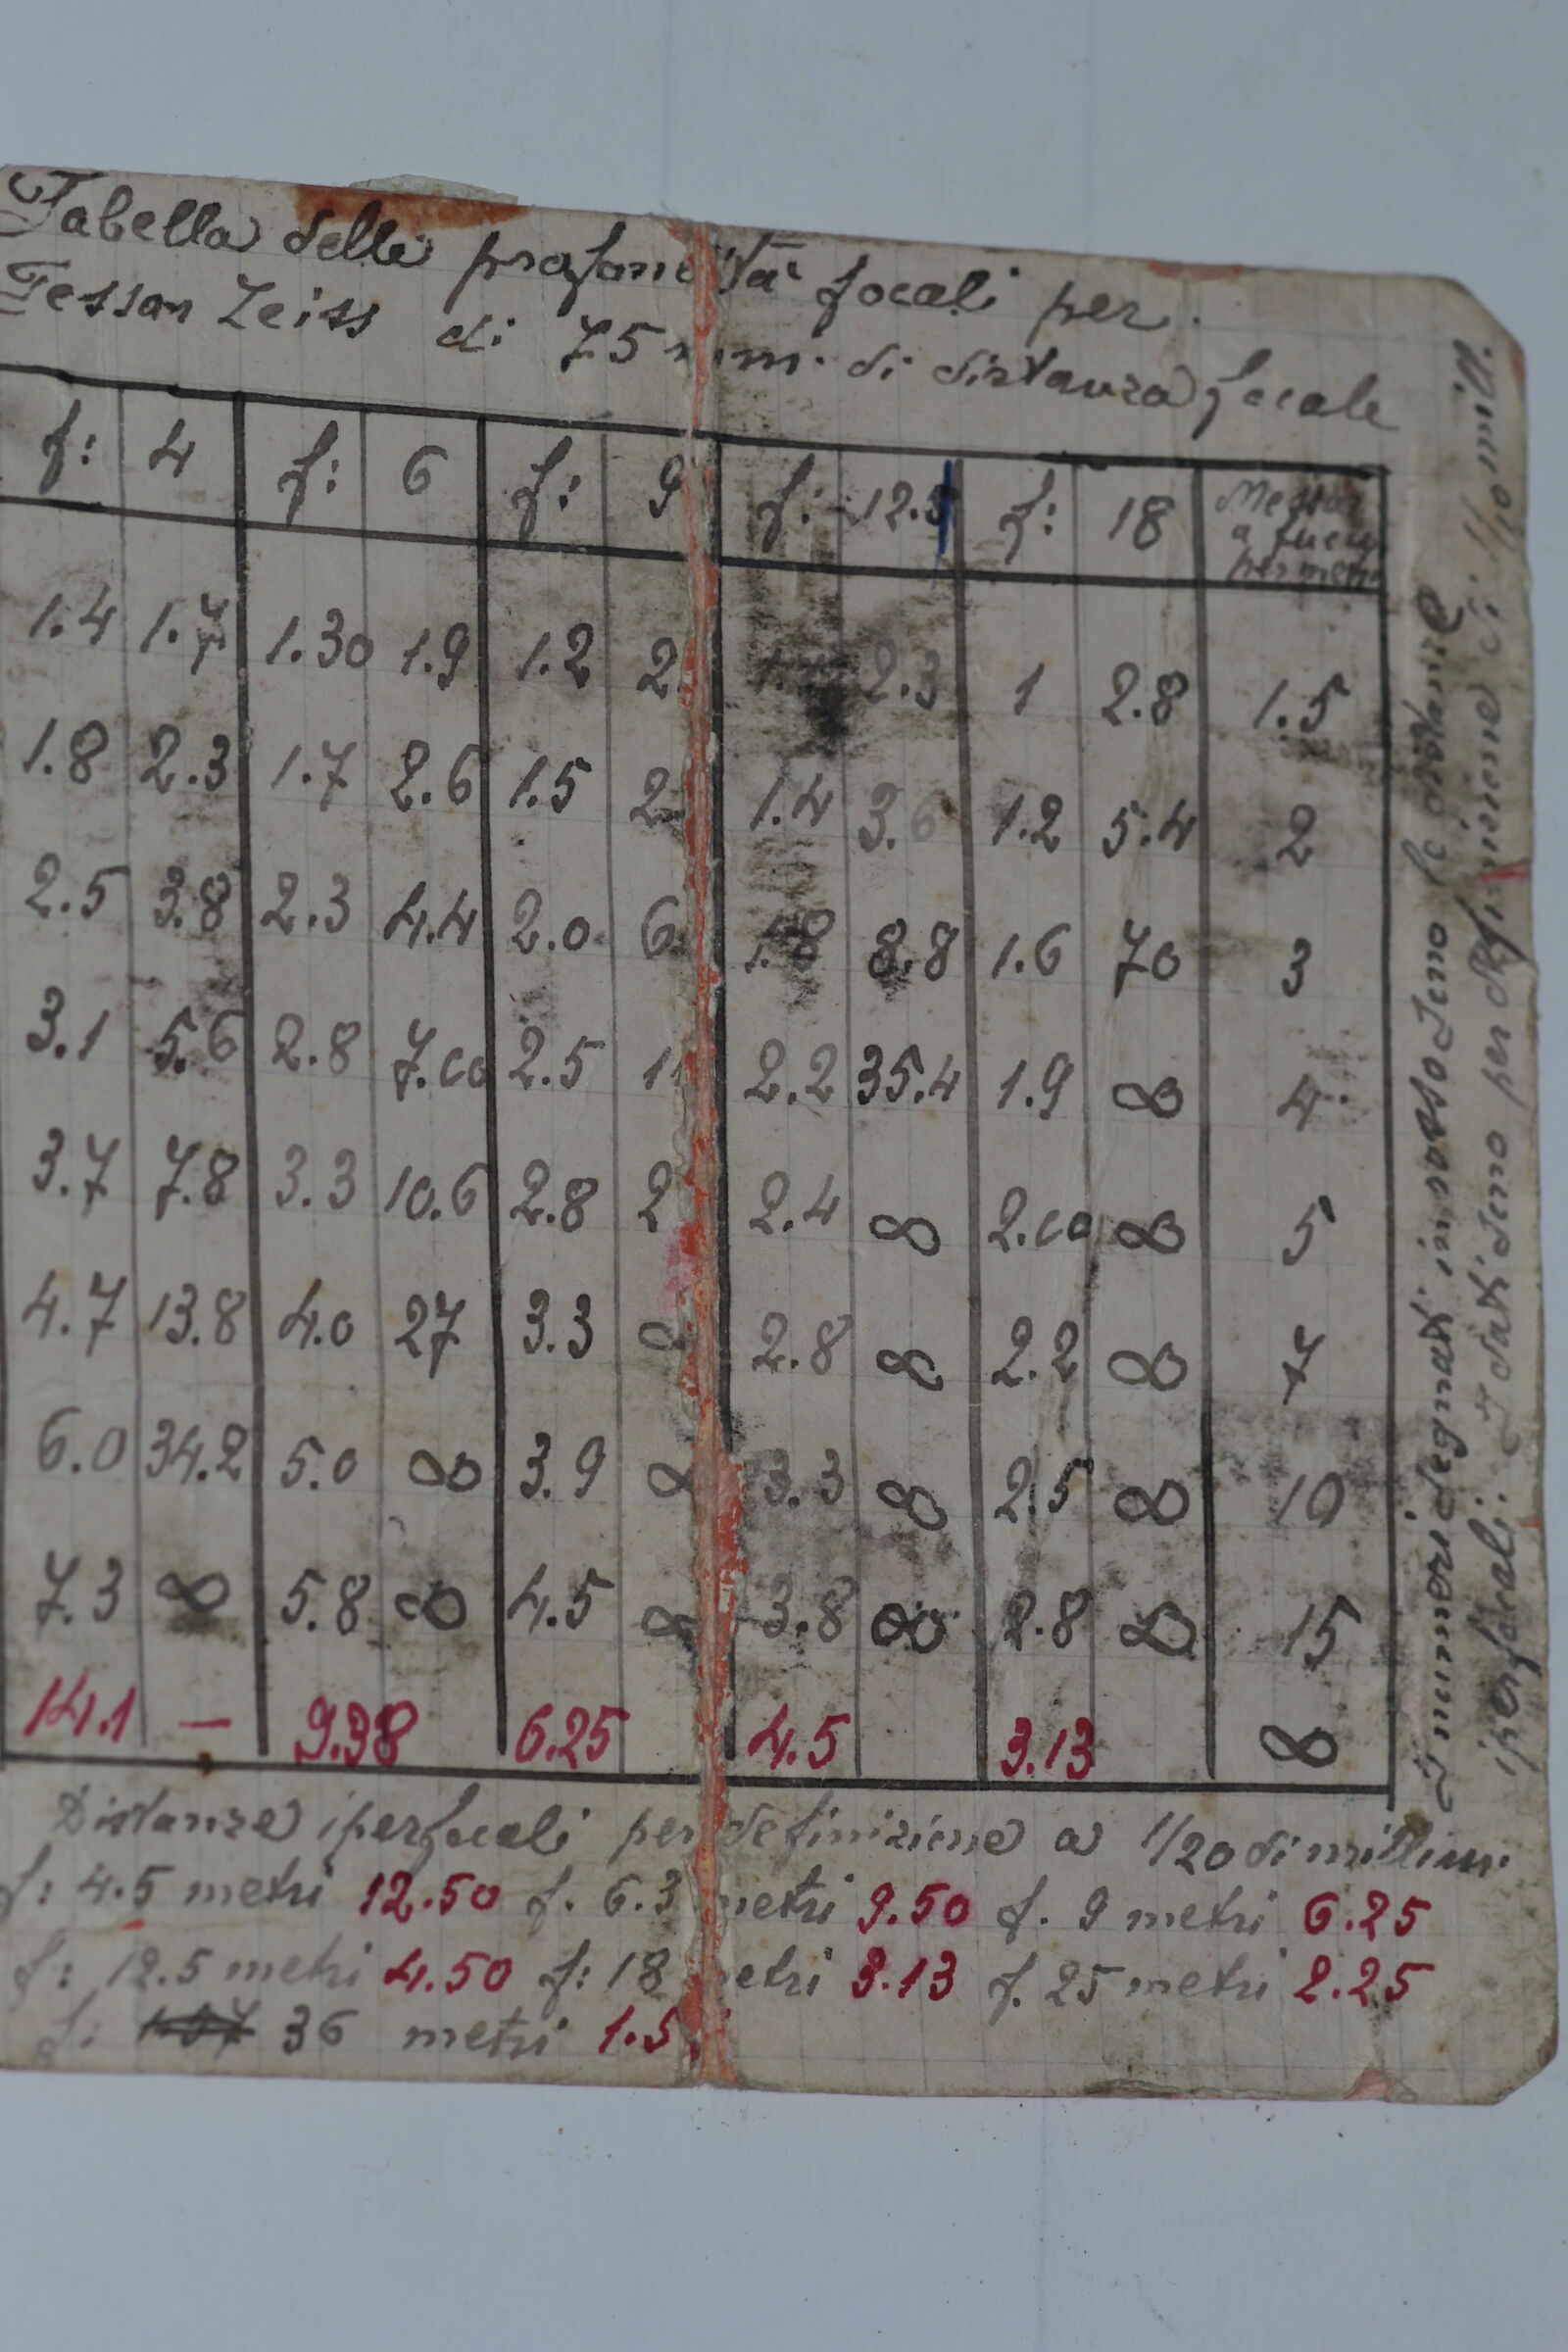 Tabella delle profondità focali per
Tessar Zeiss di 75 mm. di distanza focale
f: 4 f: 6 f: 9 f: 12.5 f: 18 Messa
a fuoco
per metri
1.4 1.7 1.30 1.9 1.2 2. 2.3 1 2.8 1.5
1.8 2.3 1.7 2.6 1.5 2. 1.4 3.6 1.2 5.4 2
2.5 3.8 2.3 4.4 2.0 6. 1.8 8.8 1.6 70 3
3.1 5.6 2.8 7.00 2.5 1 2.2 35.4 1.9 ∞ 4
3.7 7.8 3.3 10.6 2.8 2 2.4 ∞ 2.00 ∞ 5
4.7 13.8 4.0 27 3.3 ∞ 2.8 ∞ 2.2 ∞ 7
6.0 34.2 5.0 ∞ 3.9 ∞ 3.3 ∞ 2.5 ∞ 10
7.3 ∞ 5.8 ∞ 4.5 ∞ 3.8 ∞ 2.8 ∞ 15
14.1 — 9.38 6.25 4.5 3.13 ∞
Distanze iperfocali per definizione a 1/20 di millim.
f: 4.5 metri 12.50 f. 6.3 metri 9.50 f. 9 metri 6.25
f: 12.5 metri 4.50 f: 18 metri 3.13 f. 25 metri 2.25
f: 36 metri 1.5
I numeri segnati in rosso sono le distanze
iperfocali. I dati sono per definizione di 1/10 mill.